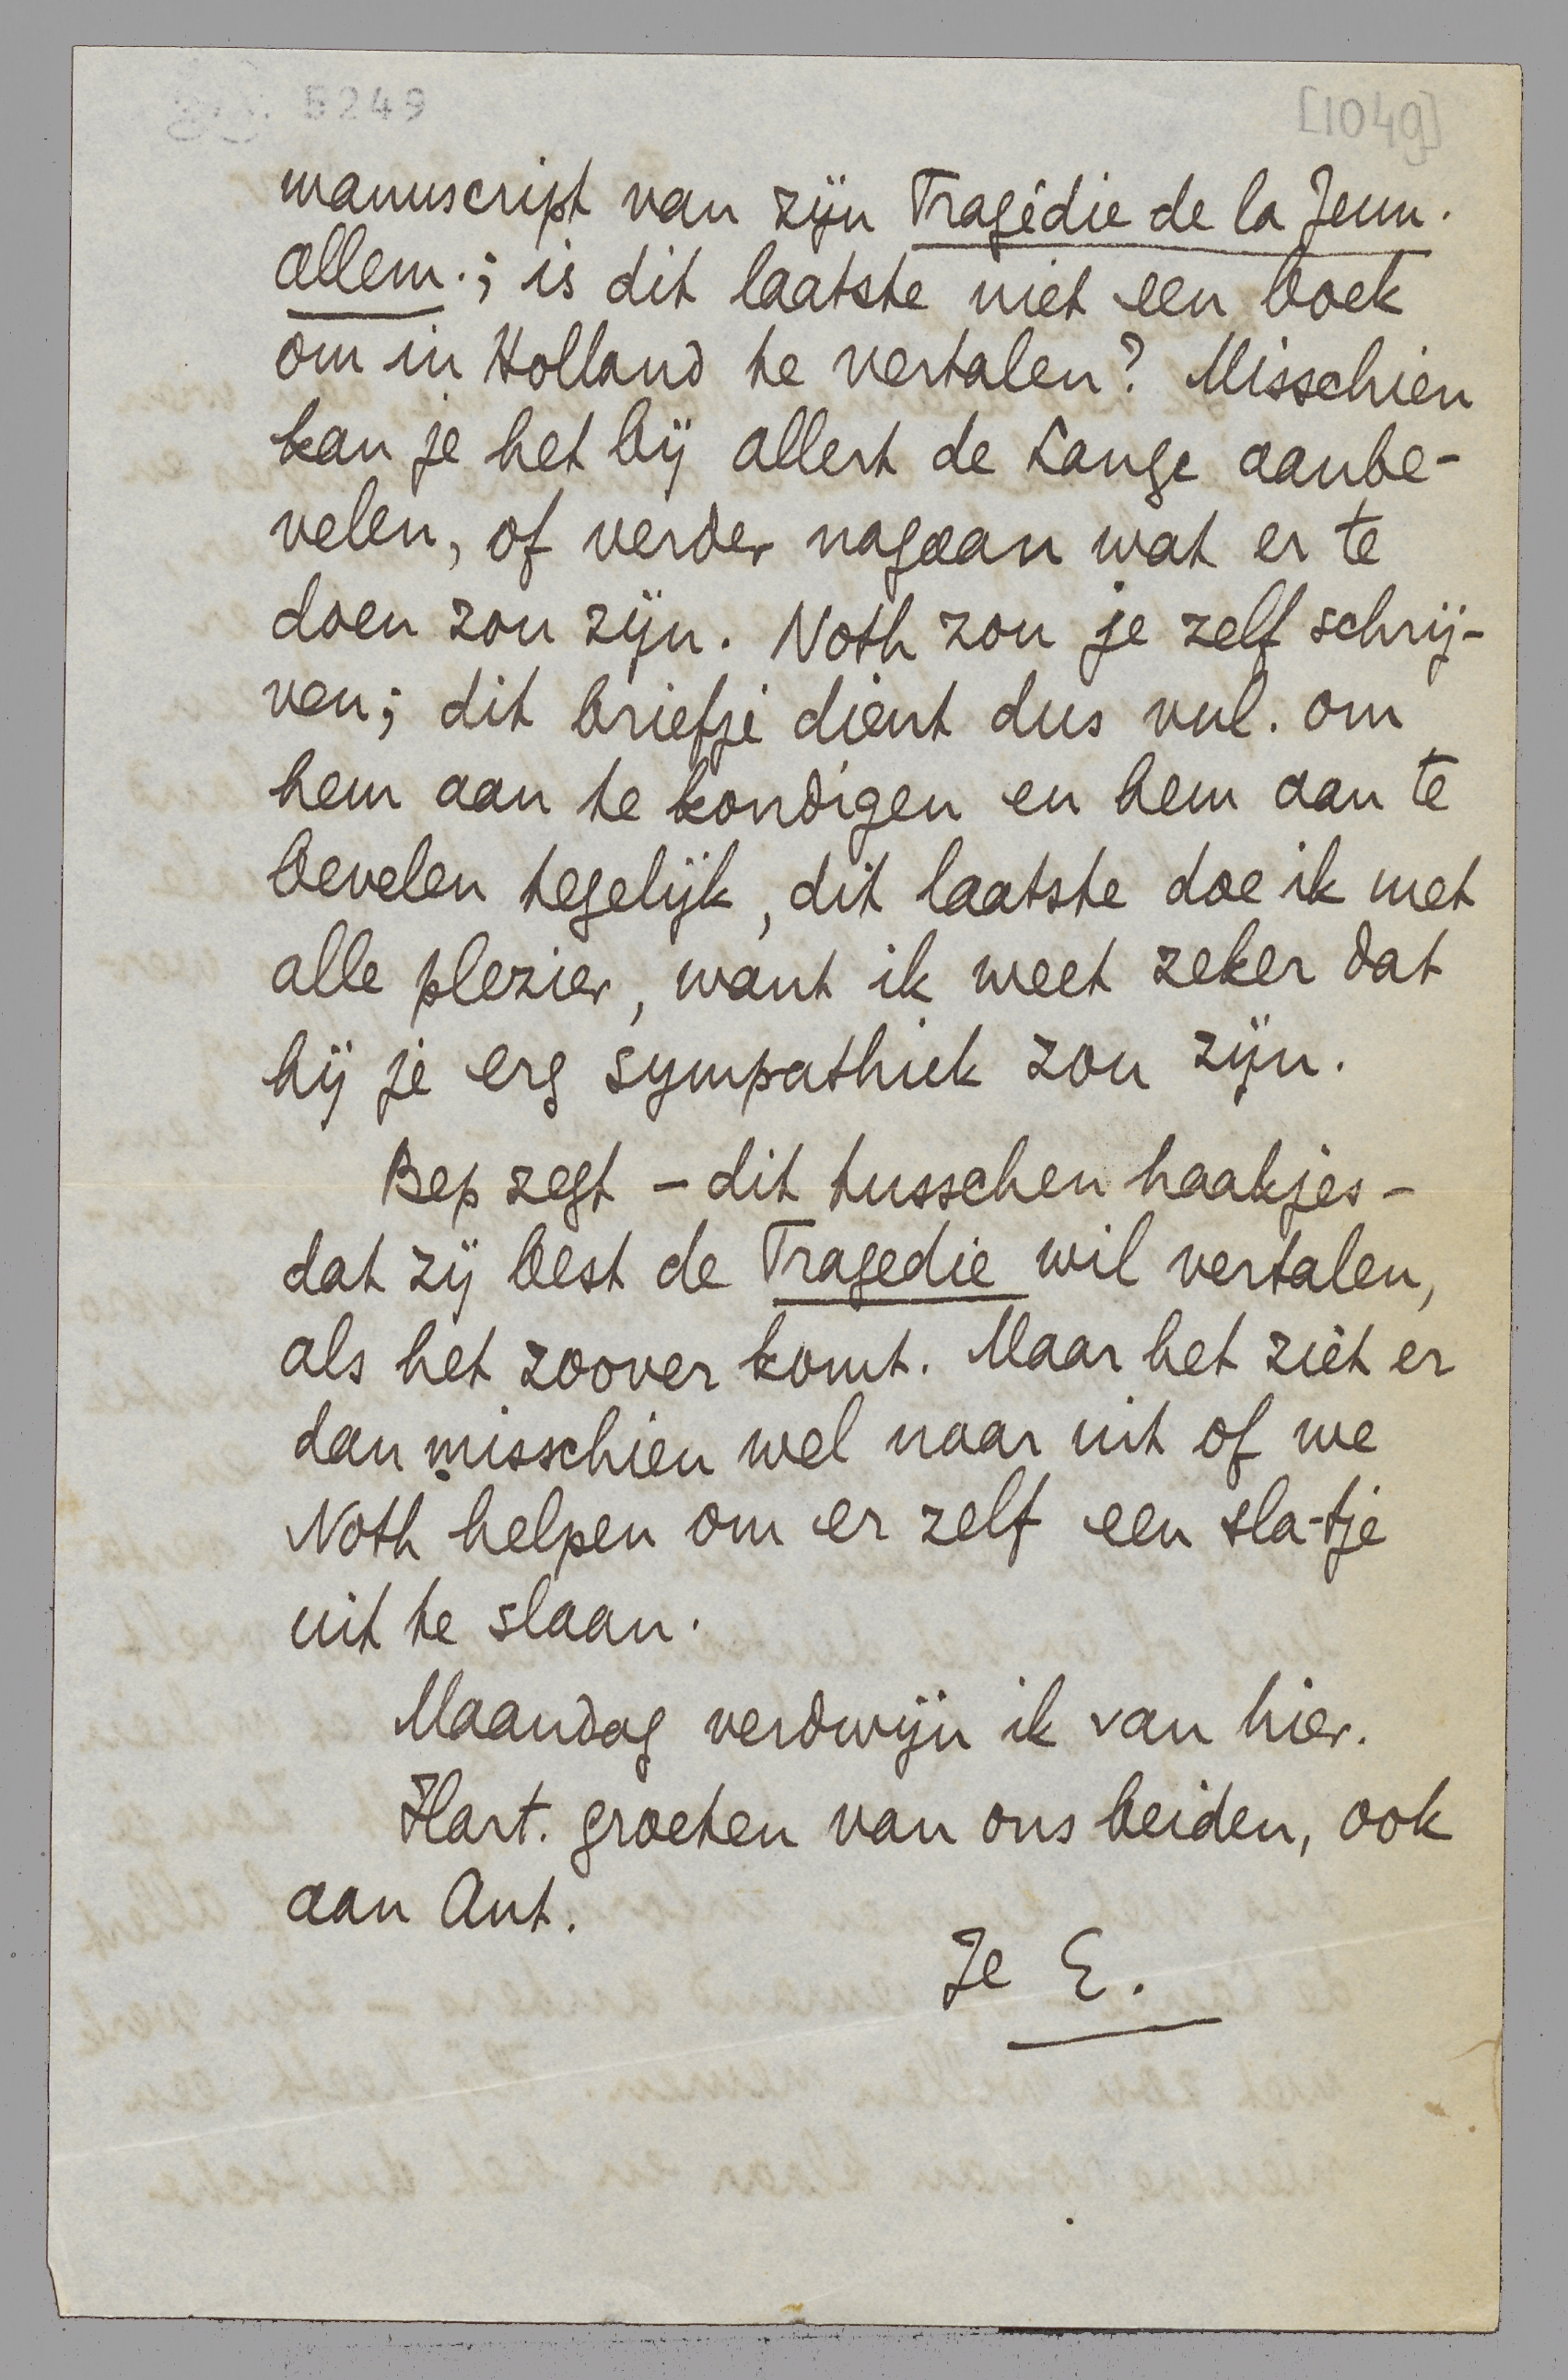 5249
[1049]
manuscript van zijn Tragédie de la Jeun.
allem.; is dit laatste niet een boek
om in Holland te vertalen? Misschien
kan je het bij Allert de Lange aanbe-
velen, of verder nagaan wat er te
doen zou zijn. Noth zou je zelf schrij-
ven; dit briefje dient dus vnl. om
hem aan te kondigen en hem aan te
bevelen tegelijk, dit laatste doe ik met
alle plezier, want ik weet zeker dat
hij je erg sympathiek zou zijn.
Bep zegt – dit tusschen haakjes –
dat zij best de Tragedie wil vertalen,
als het zoover komt. Maar het ziet er
dan misschien wel naar uit of we
Noth helpen om er zelf een sla-tje
uit te slaan.
Maandag verdwijn ik van hier.
Hart. groeten van ons beiden, ook
aan Ant.
Je E.